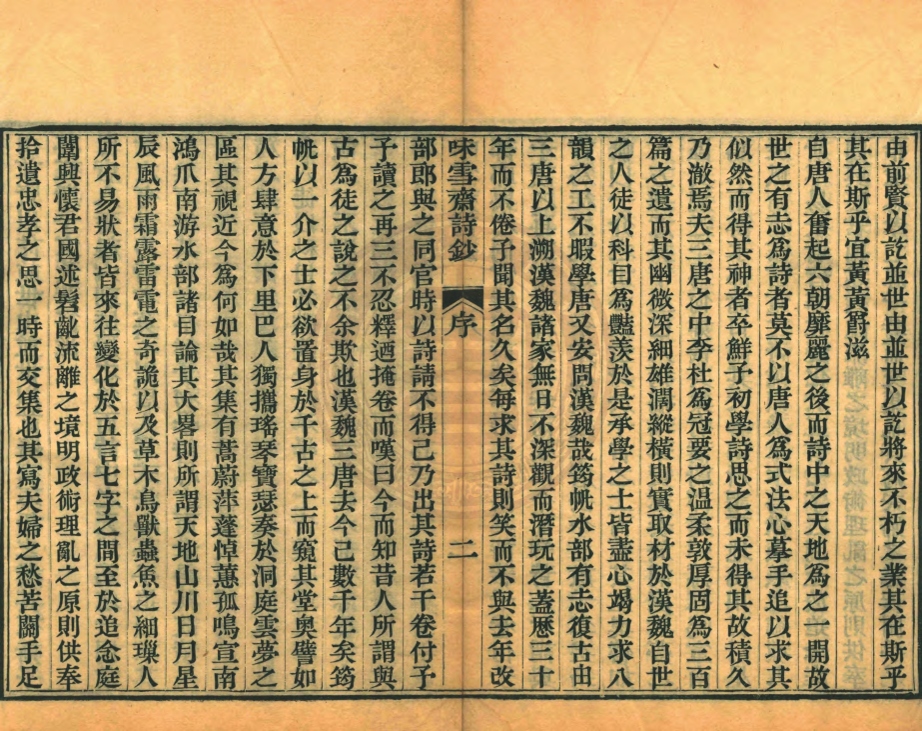 由前賢以訖並世由並世以訖將來不朽之業其在斯乎
其在斯乎宜黃黃爵滋
自唐人奮起六朝靡麗之後而詩中之天地為之一開故
世之有志為詩者莫不以唐人為式法心摹手追以求其
似然而得其神者卒鮮予初學詩思之而未得其故積久
乃澈焉夫三唐之中李杜為冠要之温柔敦厚固為三百
篇之遺而其幽微深細雄濶縱橫則實取材於漢魏自世
之人徒以科目為豔羨於是承學之士皆盡心竭力求八
韻之工不暇學唐又安問漢魏哉筠帆水部有志復古由
三唐以上溯漢魏諸家無日不深觀而潛玩之蓋歷三十
年而不倦予聞其名久矣每求其詩則笑而不與去年改
味雪齋詩鈔 序 二
部郎與之同官時以詩請不得已乃出其詩若干卷付予
予讀之再三不忍釋迺掩卷而嘆曰今而知昔人所謂與
古為徒之說之不余欺也漢魏三唐去今已數千年矣筠
帆以一介之士必欲置身於千古之上而窺其堂奧譬如
人方肆意於下里巴人獨攜瑤琴寶瑟奏於洞庭雲夢之
區其視近今為何如哉其集有蒿蔚萍蓬悼蕙孤鳴宣南
鴻爪南游水部諸目論其大畧則所謂天地山川日月星
辰風雨霜露雷電之奇詭以及草木鳥獸蟲魚之細璅人
所不易狀者皆來往變化於五言七字之間至於追念庭
闈興懷君國述髫齔流離之境明政術理亂之原則供奉
拾遺忠孝之思一時而交集也其寫夫婦之愁苦關手足